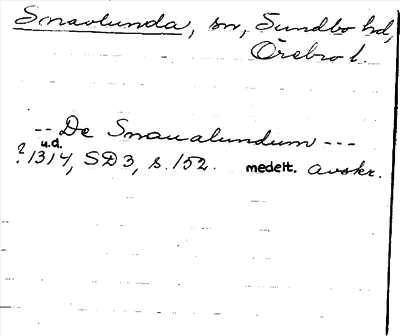 Snavlunda, sn, Sundbo hd,
Örebro l.
-- De Snaualundum ---
u.d.
? 1314, SD 3, s. 152. medelt. avskr.